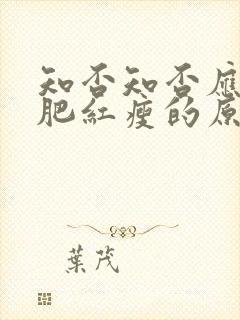 知否知否應
肥紅瘦的原
葉茂